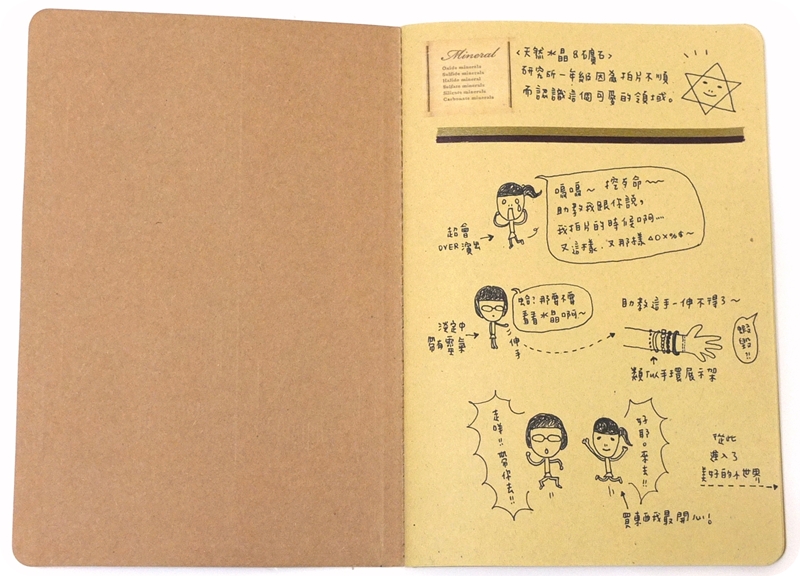 Mineral
Oxide minerals
Sulfide minerals
Halide mineral
Sulfate minerals
Silicate minerals
Carbonate minerals
<天然水晶&礦石>
研究所一年級因為拍片不順
而認識這個可愛的領域。
嘎嘎~ 控ㄉ命~~
助教我跟你說,
我拍片的時候啊…
又這樣、又那樣
超會
OVER演出
蛤!那要不要
看看水晶啊~
淡定中
帶有靈氣
伸手
助教這手一伸不得了~
類似手環展示架
走咩!!帶你去!!
好耶。來去!!
從此
進入了
美好的小世界
買東西我最開心!